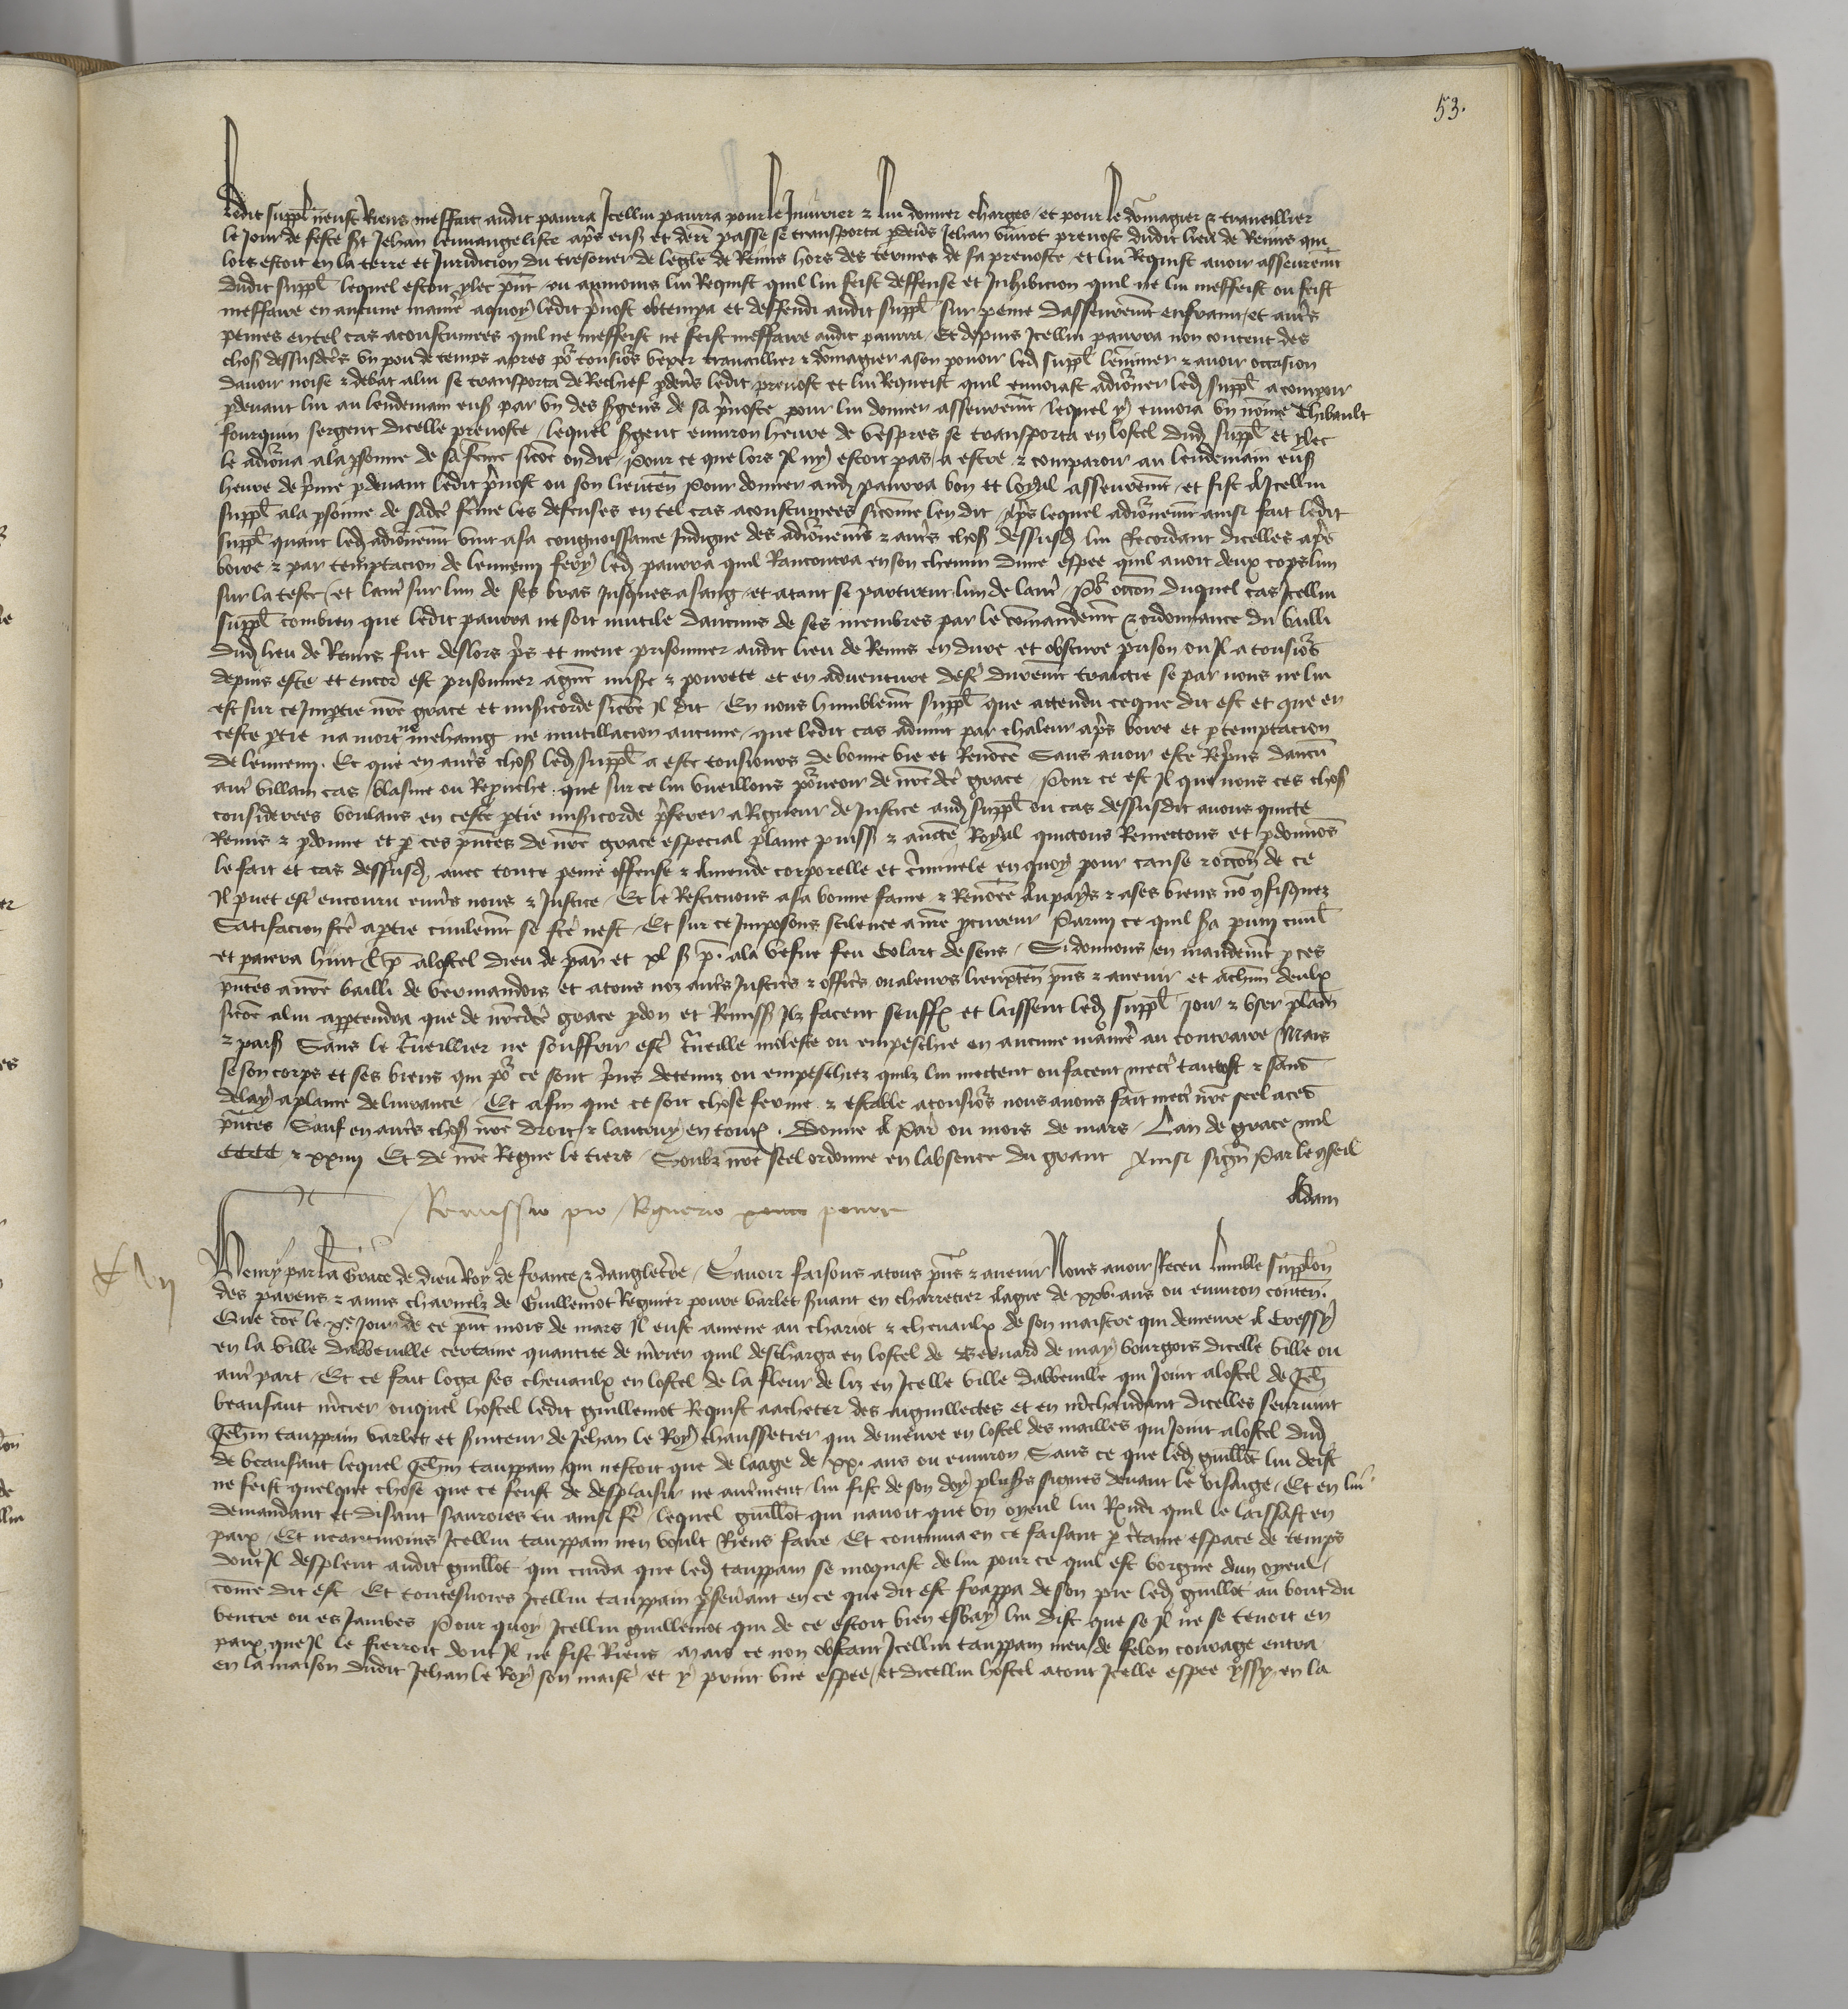 53.
Ledit suppl neust Riens meffait audit paurra Icellui paurra pour le Iniurier & lui donner charges / et pour le dommagier & traveillier
le Jour de feste st Jehan leuuangeliste aps ens et derr passe se transporta pdeus Jehan prevost dudit lieu de Reims qui
lors estoit en la terre et Juridicion du tresorier de leglë de Reims hors des termes de sa prevoste / et lui Requist avoir asseuremt
dudit suppl lequel estoit ylec pnt / ou aumoins lui Requist quil lui feist deffense et Inhibicion quil ne lui meffeist ou feist
meffaire en aucune manie aquoy ledit pvost obtempa et deffendi audit suppl sur peine dasseuremt enfraint / et autrs
peines en tel cas acoustumees quil ne meffeist ne feist meffaire audit paurra / Et depuis Icellui paurra non content des
chos dessusdces un pou de temps apres por tousiors vexer travaillier & dommagier a son povoir led suppl & avoir occasion
davoir noise & debat a lui se transporta de Rechief pdeus ledit prevost et lui Requeist quil envoiast adiorner led suppl a compoir
pdevant lui au lendemain ens par un des sgens de sa pvoste pour lui donner asseuremt / lequel y envoia un nomme Thibault
fourquin sergent dicelle prevoste / lequel sgent environ heure de vespres se transporta en lostel dud suppl et ylec
le adiorna ala psonne de sa feme sicome on dit / Pour ce que lors Il ny estoit pas / a estre & comparoir au lendemain ens
heure de prime pdevant ledit pvost ou son lieuten Pour donner aud paurra bon et loyal asseuremt / et fist a Icellui
suppl ala psonne de sadce feme les defenses en tel cas acoustumees sicomme len dit / Aps lequel adiornemt ainsi fait ledit
suppl quant led adiornemt vint a sa congnoissance Indigne des adiornemens & autrs chos dessusd lui Recordant dicelles aps
boire & par temptacion de lennemi fery led paurra quil Rancontra en son chemin dune espee quil avoit deux cops lun
sur la teste / et lautr sur lun de ses bras Jusques a sang / et atant se partirent lun de lautr / Por occon duquel cas Icellui
suppl combien que ledit paurra ne soit mutile daucuns de ses membres par le commandemt & ordonnance du bailli
dud lieu de Reims fut deslors prs et mene prisonnier audit lieu de Reims en dure et obscure prison ou Il a tousiors
depuis este et encor est prisonnier a gnt misre & povrete et en adventure destr durement traictie se par nous ne lui
est sur ce Impartie nre grace et misicorde sicome Il dit / En nous humblemt suppl que attendu ceque dit est et que en
ceste ptie na mort ne mehaing ne mutillacion aucune / que ledit cas advint par chaleur aps boire et p temptacion
de lennemi . Et que en autrs chos led suppl a este tousiours de bonne vie et Renomee Sans avoir este Reprins daucun
autr villain cas blasme ou Reprouche . que sur ce lui vueillons porveoir de nre dce grace / Pour ce est Il que nous ces chos
considerees voulans en ceste ptie misicorde preferer a Rigueur de Justice aud suppl ou cas dessusdit avons quicte
Remis & pdonne et p ces pntes de nre grace especial plaine puiss & aucte Royal quictons Remettons et pdonnos
le fait et cas dessusd avec toute peine offense & Amende corporelle et criminele en quoy pour cause & occon de ce
Il puet estr encouru envrs nous & Justice / Et le Restituons a sa bonne fame & Renomee Au pays & a ses biens no confisquez
Satifacion fce aptie civilemt se fce nest / Et sur ce Imposons scilence a nre pcureur Parmi ce quil sra puni civil
et paiera huit l p alostel dieu de par et xl s p . ala vefue feu Colart de sens . Si donnons en mandemt p ces
pntes a nre bailli de vermandois et atous noz autrs Justiciers & officrs ou aleurs lieuxten pns & avenir et achun deulx
sicome alui appartendra que de nredce grace pdon et Remiss Ilz facent seuffr et laissent led suppl joir & user plain
& pais Sans le traveillier ne souffrir estr traveille moleste ou empeschie en aucune manie au contraire Mais
se son corps et ses biens qui por ce sont pris detenuz ou empeschiez quilz lui mettent ou facent mectr tantost & sans
delay aplaine delivrance / Et afin que ce soit chose ferme & estable a tousiors nous avons fait mectr nre seel aces
pntes / Sauf en autrs chos nre droit & lautruy en tout . Donne A Par ou mois de mars / Lan de grace mil
CCCC & xxiiij Et de nre Regne le tiers / Soubz nre seel ordonne en labsence du grant Ainsi sign Par le conseil
Adam
Remissio pro Regnerio povre
Henry par la Grace de dieu Roy de france & dangleterre / Savoir faisons atous pns & avenir Nous avoir Receu lumble supplon
des parens & amis charnelz de Guillemot Regnier povre varlet svant en charretier Aagie de xxv . ans ou environ conten .
Que come le xe . jour de ce pnt mois de mars Il eust amene au chariot & chevaulx de son maistre qui demeure A Cressy
en la ville dabbeville certaine quantite de mrien quil descharga en lostel de Bernard de may bourgois dicelle ville ou
autr part / Et ce fait loga ses chevaulx en lostel de la fleur de liz en Icelle ville dabbeville qui Joint alostel de Jeh
beausaut mrcier ouquel hostel ledit guillemot Requist aachecter des aiguillectes et en mrchandant dicelles seurvint
Jehin tauppain varlet et sviteur de Jehan le Roy chaussetier qui demeure en lostel des mailles qui Joint alostel dud
de beausaut lequel Jehin tauppain qui nestoit que de laage de xx . ans ou environ / Sans ce que led guillot lui deist
ne feist quelque chose que ce feust de desplaisir ne autrment / lui fist de son doy plusrs signes devant le visaige / Et en lui
demandant et disant saroies tu ainsi fe / lequel guillot qui navoit que un oyeul lui Rndi quil le laissast en
paix / Et neantmoins Icellui tauppain nen voult Riens faire / Et continua en ce faisant p ctaine espace de temps
dont Il desplut audit guillot qui cuida que led tauppain se moquast de lui pour ce quil est borgne dun oyeul /
come dit est / Et toutesvoies Icellui tauppain psevrant en ce que dit est frappa de son pie led guillot au bout du
ventre ou es Jambes Pour quoy Icellui guillemot qui de ce estoit bien esbay lui dist que se Il ne se tenoit en
paix que Il le fierroit dont Il ne fist Riens / Mais ce non obstant Icellui tauppain meu de felon courage entra
en la maison dudit Jehan le Roy son maistr / et y print une espee / et dicellui hostel atout Icelle espee yssy en la